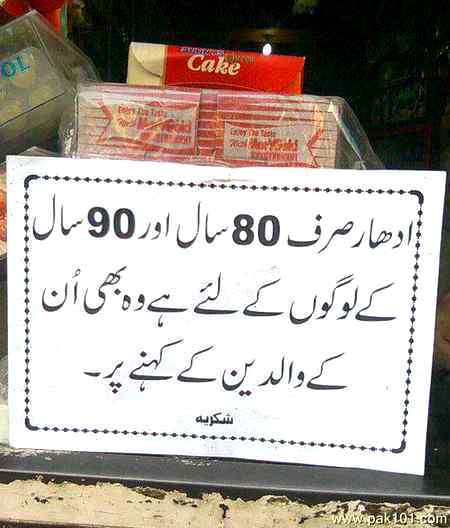 Cake
Enjoy The Taste
Enjoy The Taste
ادھار صرف 80 سال اور 90 سال
کے لوگوں کے لئے ہے وہ بھی اُن
کے والدین کے کہنے پر۔
شکریہ
www.pak101.com